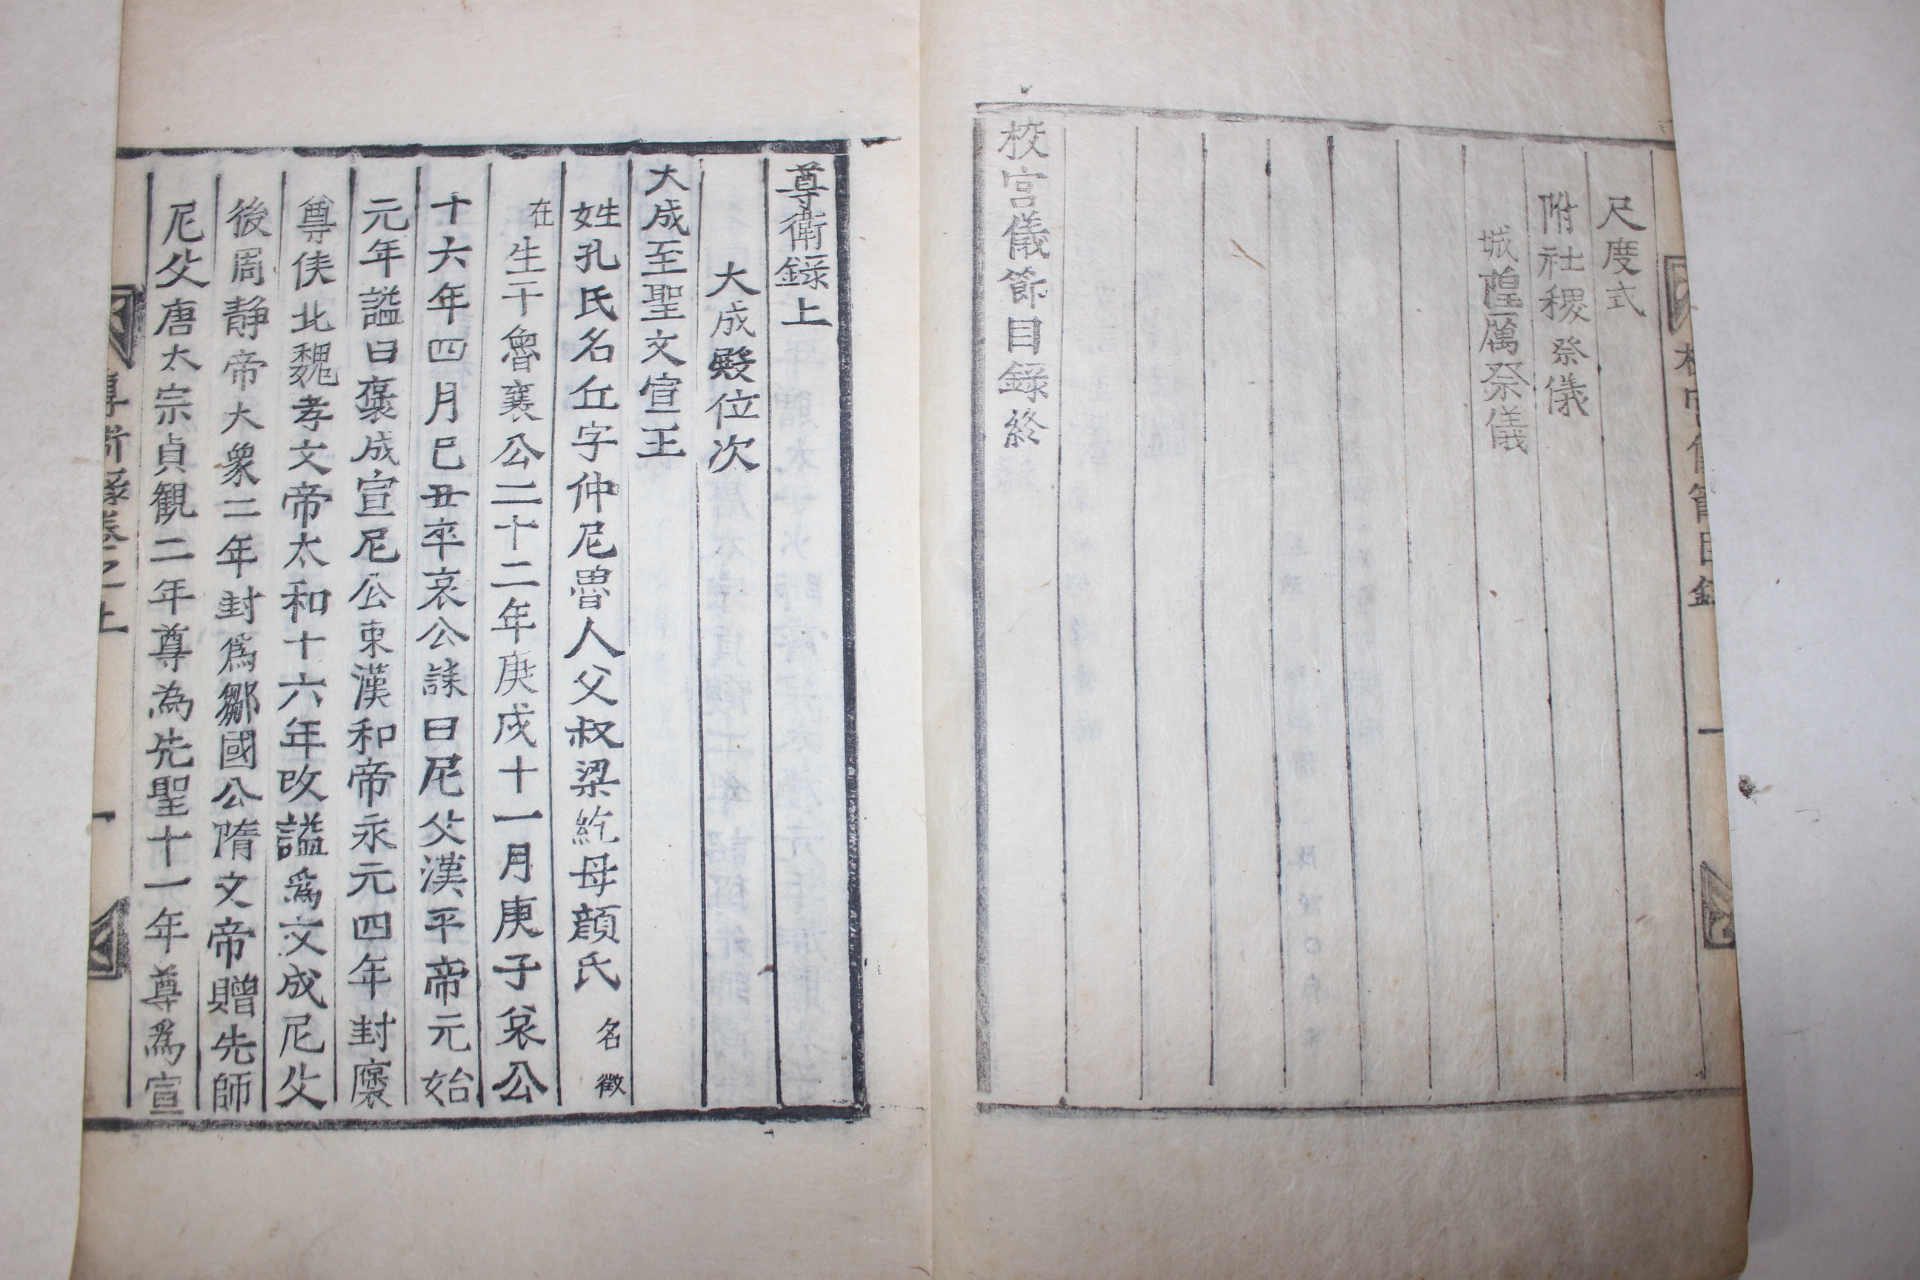 尺度式
附社稷祭儀
城隍厲祭儀
校宮儀節目錄終
尊衛錄上
大成殿位次
大成至聖文宣王
姓孔氏名丘字仲尼魯人父叔梁紇母顔氏名徵
在生于魯襄公二十二年庚戌十一月庚子哀公
十六年四月已丑卒哀公誄曰尼父漢平帝元始
元年謚曰褒成宣尼公東漢和帝永元四年封褒
尊侯北魏孝文帝太和十六年改謚爲文成尼父
後周靜帝大象二年封爲鄒國公隋文帝贈先師
尼父唐太宗貞觀二年尊為先聖十一年尊爲宣
尊衛錄卷之上 一